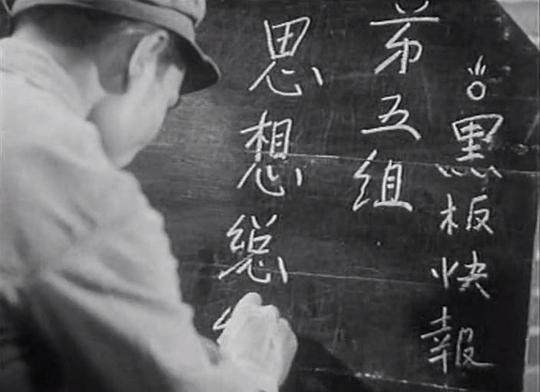 "黑板快報
第五組
思想總